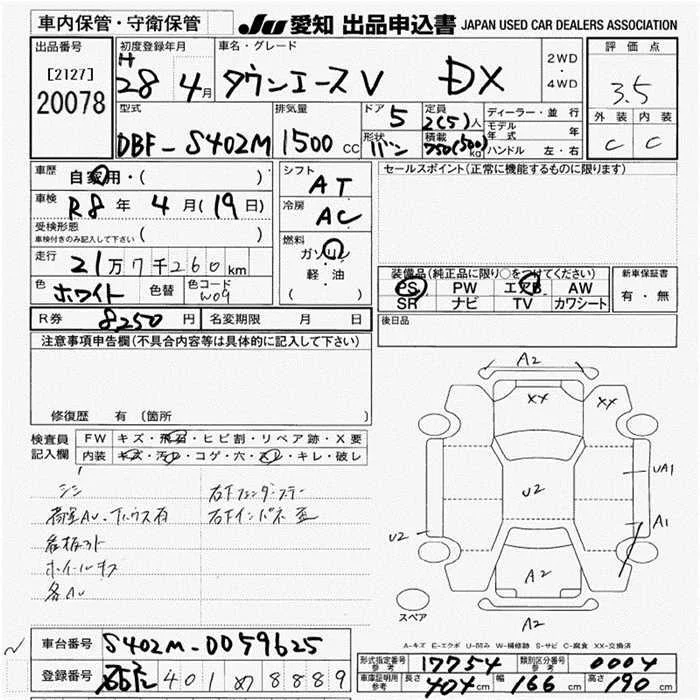 車内保管・守衛保管
JU 愛知 出品申込書 JAPAN USED CAR DEALERS ASSOCIATION
出品番号
[2127]
20078
初度登録年月
H
28 4月
車名・グレード
タウンエースV DX
2WD
・
4WD
評価点
3.5
外装 内装
C C
型式
DBF-S402M
排気量
1500 cc
ドア 5
形状 バン
定員 2(5)人
積載 750(500)kg
ディーラー・並行
モデル年式 年
ハンドル 左・右
車歴 自家用・( )
車検 R8年 4月(19日)
受検形態
車検付きのみ記入して下さい ( )
走行 21万7千260km
色 ホワイト 色替 色コード W09
シフト
AT
冷房
AC
燃料
ガソリン
軽・油
( )
セールスポイント(正常に機能するものに限ります)
装備品(純正品に限り○をつけてください)
PS PW エアB AW
SR ナビ TV カワシート
新車保証書
有・無
R券 8250円 名変期限 月 日
後日品
注意事項申告欄(不具合内容等は具体的に記入して下さい)
修復歴 有 (箇所 )
検査員
記入欄
FW キズ・飛石・ヒビ割・リペア跡・X要
内装 キズ・汚レ・コゲ・穴・スレ・キレ・破レ
荷室AU、
ホイールキズ
各AU
A2
XX XX
U2
UA1
A1
U2
A2
スペア
A2
A-キズ E-エクボ U-凹み W-補修跡 S-サビ C-腐食 XX-交換済
車台番号 S402M-0059625
登録番号 401 8889
形式指定番号 参考 17754 類別区分番号 参考 0004
車庫証明用 参考 長さ 404cm 幅 166cm 高さ 190cm